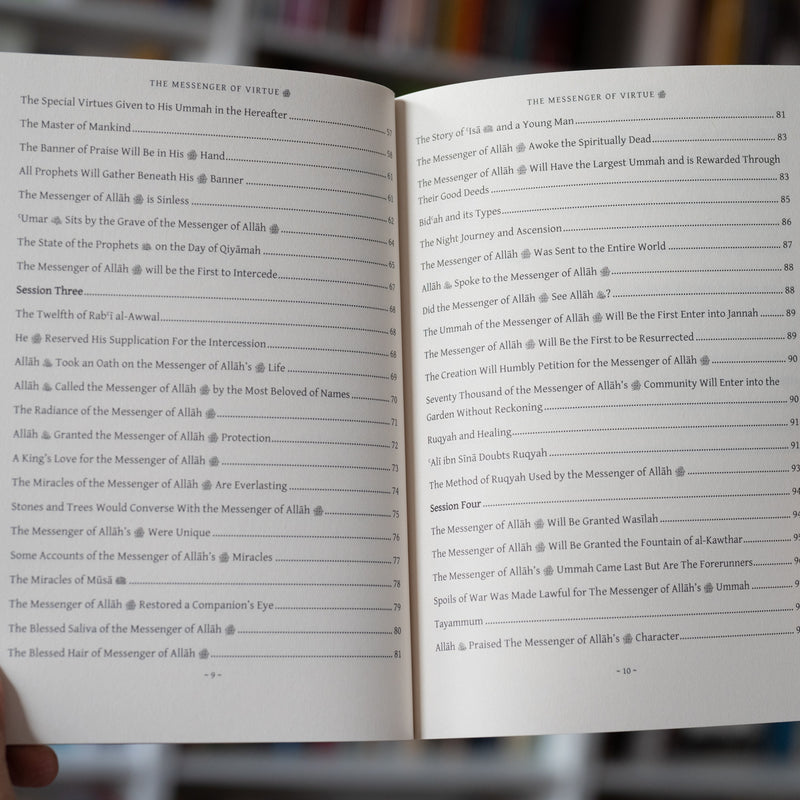 THE MESSENGER OF VIRTUE ﷺ
The Special Virtues Given to His Ummah in the Hereafter 57
The Master of Mankind 58
The Banner of Praise Will Be in His ﷺ Hand 61
All Prophets Will Gather Beneath His ﷺ Banner 61
The Messenger of Allāh ﷺ is Sinless 62
ʿUmar Sits by the Grave of the Messenger of Allāh ﷺ 64
The State of the Prophets on the Day of Qiyāmah 65
The Messenger of Allāh ﷺ will be the First to Intercede 67
Session Three 68
The Twelfth of Rabʿī al-Awwal 68
He ﷺ Reserved His Supplication For the Intercession 68
Allāh Took an Oath on the Messenger of Allāh's ﷺ Life 69
Allāh Called the Messenger of Allāh ﷺ by the Most Beloved of Names 70
The Radiance of the Messenger of Allāh ﷺ 71
Allāh Granted the Messenger of Allāh ﷺ Protection 72
A King's Love for the Messenger of Allāh ﷺ 73
The Miracles of the Messenger of Allāh ﷺ Are Everlasting 74
Stones and Trees Would Converse With the Messenger of Allāh ﷺ 75
The Messenger of Allāh's ﷺ Were Unique 76
Some Accounts of the Messenger of Allāh's ﷺ Miracles 77
The Miracles of Mūsā 78
The Messenger of Allāh ﷺ Restored a Companion's Eye 79
The Blessed Saliva of the Messenger of Allāh ﷺ 80
The Blessed Hair of Messenger of Allāh ﷺ 81
~ 9 ~
THE MESSENGER OF VIRTUE ﷺ
The Story of ʿIsā and a Young Man 81
The Messenger of Allāh ﷺ Awoke the Spiritually Dead 83
The Messenger of Allāh ﷺ Will Have the Largest Ummah and is Rewarded Through
Their Good Deeds 83
Bidʿah and its Types 85
The Night Journey and Ascension 86
The Messenger of Allāh ﷺ Was Sent to the Entire World 87
Allāh Spoke to the Messenger of Allāh ﷺ 88
Did the Messenger of Allāh ﷺ See Allāh ? 88
The Ummah of the Messenger of Allāh ﷺ Will Be the First Enter into Jannah 89
The Messenger of Allāh ﷺ Will Be the First to be Resurrected 89
The Creation Will Humbly Petition for the Messenger of Allāh ﷺ 90
Seventy Thousand of the Messenger of Allāh's ﷺ Community Will Enter into the
Garden Without Reckoning 90
Ruqyah and Healing 91
ʿAlī ibn Sīnā Doubts Ruqyah 91
The Method of Ruqyah Used by the Messenger of Allāh ﷺ 93
Session Four 94
The Messenger of Allāh ﷺ Will Be Granted Wasīlah
The Messenger of Allāh ﷺ Will Be Granted the Fountain of al-Kawthar
The Messenger of Allāh's ﷺ Ummah Came Last But Are The Forerunners
Spoils of War Was Made Lawful for The Messenger of Allāh's ﷺ Ummah
Tayammum
Allāh Praised The Messenger of Allāh's ﷺ Character
~ 10 ~